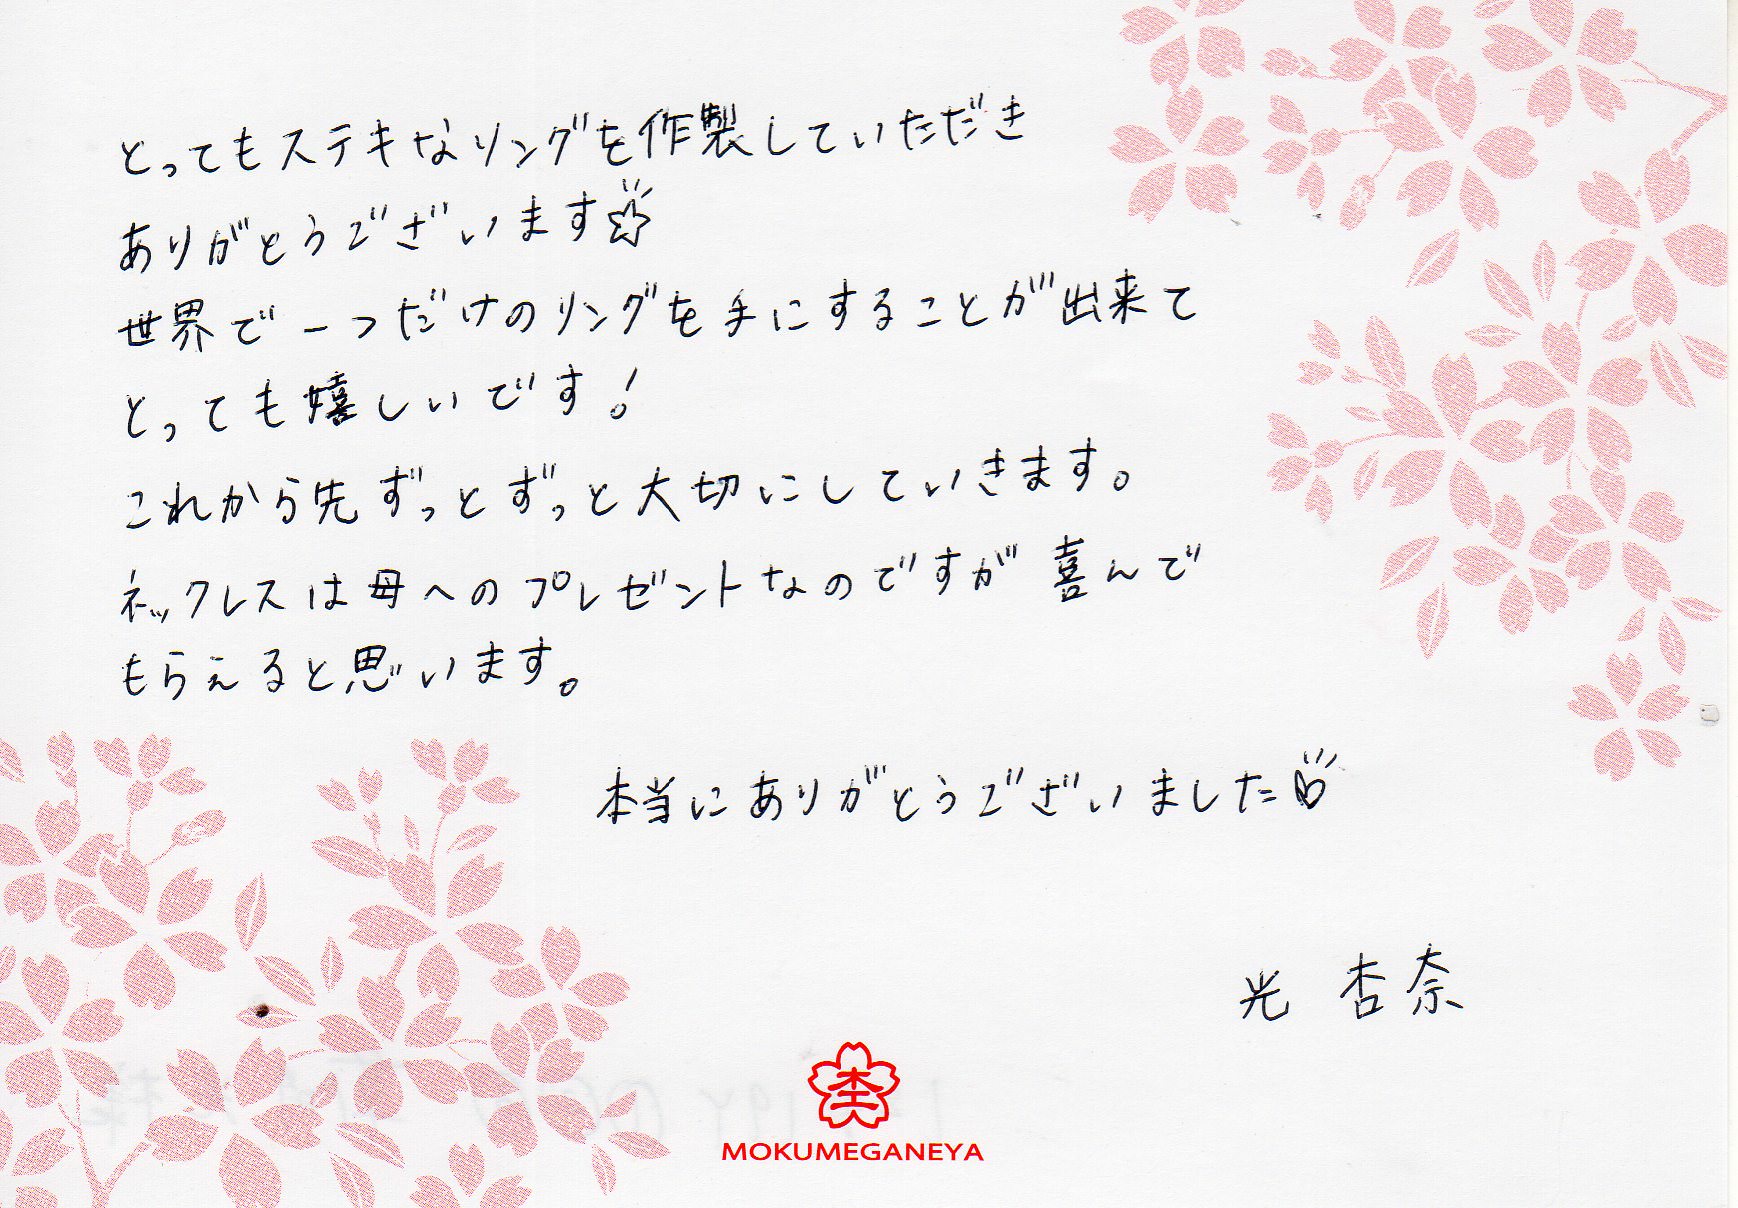 とってもステキなリングを作製していただき
ありがとうございます☆
世界で一つだけのリングを手にすることが出来て
とっても嬉しいです!
これから先ずっとずっと大切にしていきます。
ネックレスは母へのプレゼントなのですが喜んで
もらえると思います。
本当にありがとうございました♡
光 杏奈
杢
MOKUMEGANEYA